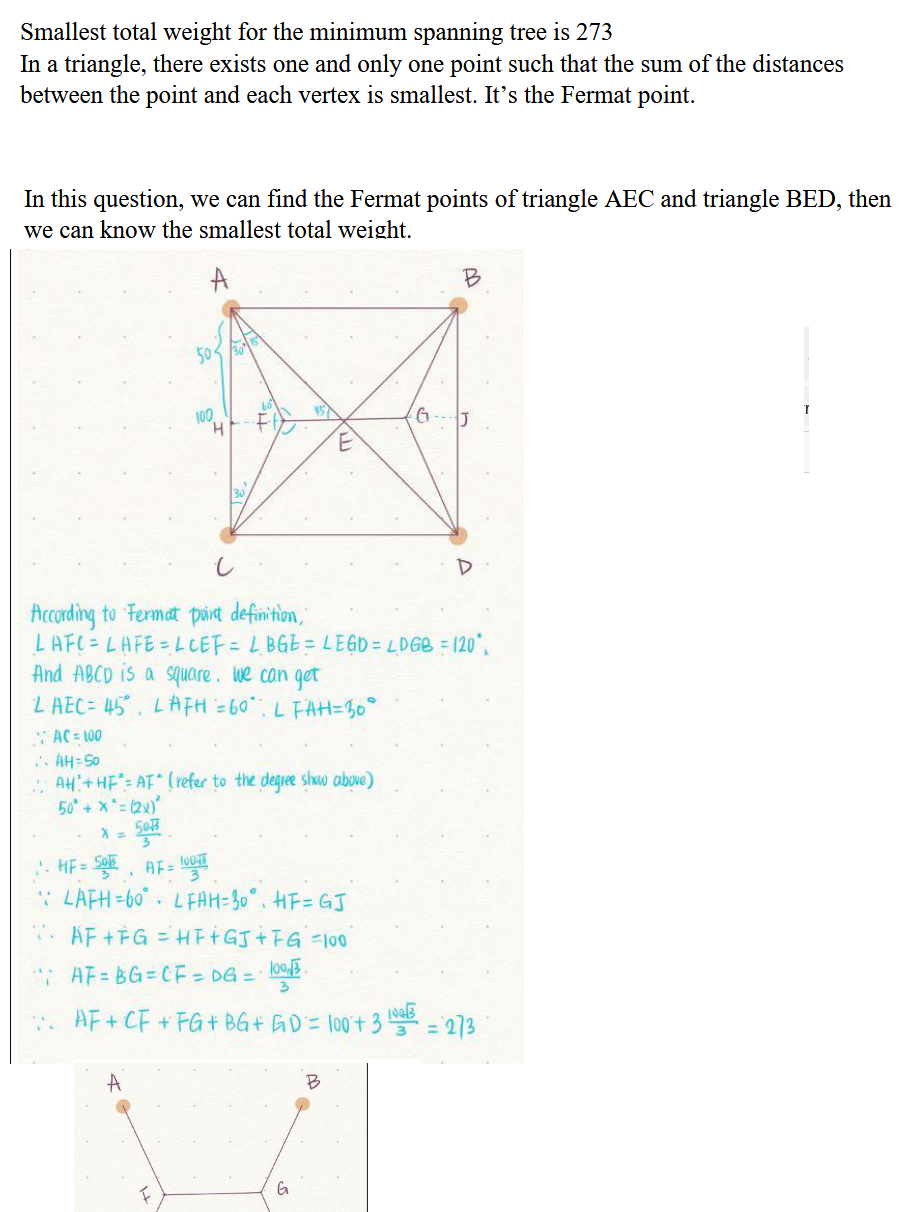 Smallest total weight for the minimum spanning tree is 273
In a triangle, there exists one and only one point such that the sum of the distances
between the point and each vertex is smallest. It's the Fermat point.
In this question, we can find the Fermat points of triangle AEC and triangle BED, then
we can know the smallest total weight.
A
B
50
30°
15°
100
H
60°
F
45°
E
G
J
30°
C
D
According to Fermat point definition,
∠AFC = ∠AFE = ∠CEF = ∠BGE = ∠EGD = ∠DGB = 120°,
And ABCD is a square. We can get
∠AEC = 45°, ∠AFH = 60°, ∠FAH = 30°
∵ AC = 100
∴ AH = 50
∴ AH² + HF² = AF² (refer to the degree show above)
50² + x² = (2x)²
x = 50√3/3
∴ HF = 50√3/3, AF = 100√3/3
∵ ∠AFH = 60°. ∠FAH = 30°. HF = GJ
∴ AF + FG = HF + GJ + FG = 100
∵ AF = BG = CF = DG = 100√3/3
∴ AF + CF + FG + BG + GD = 100 + 3 100√3/3 = 273
A
B
F
G